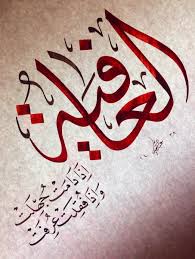 العافية
إذا دامت جهلت
وإذا فقدت عرفت